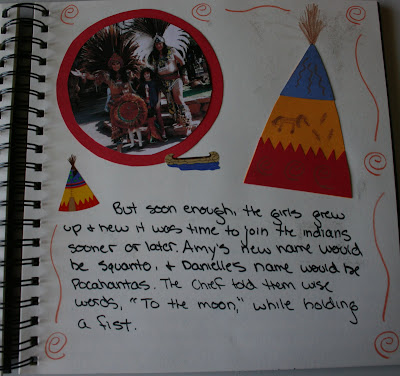 But soon enough, the girls grew
up + new it was time to join the indians
sooner or later. Amy's new name would
be Squanto, + Danielle's name would be
Pocahantas. The Chief told them wise
words, "To the moon," while holding
a fist.